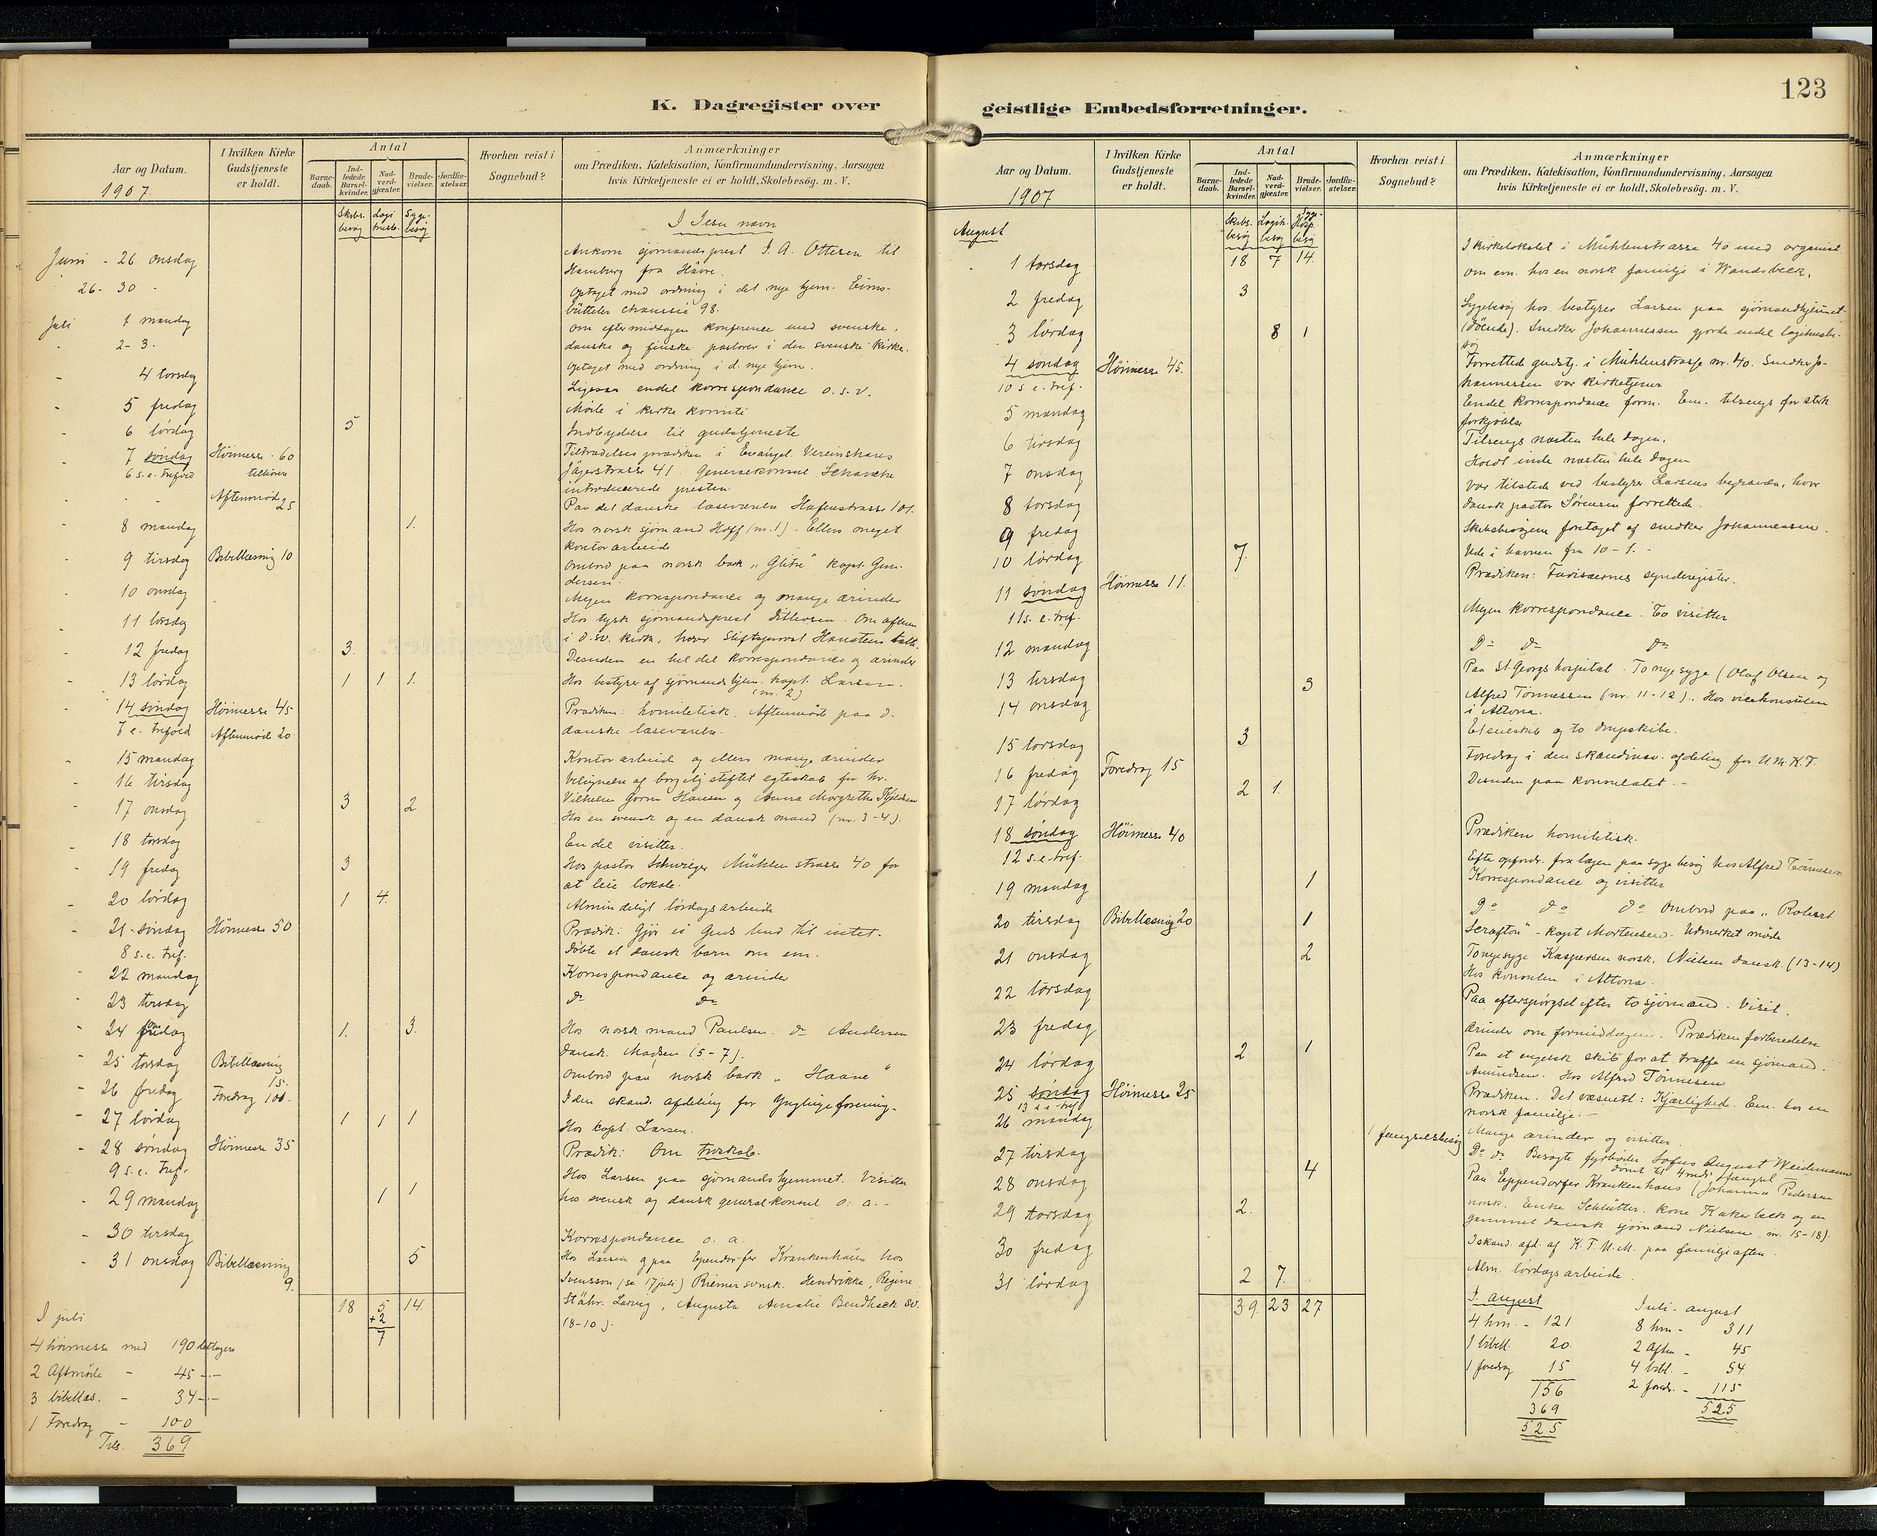 K. Dagregister over
Aar og Datum.
1907.
I hvilken Kirke Gudstjeneste er holdt.
Antal
Barnedaab.
Indledede Barselkvinder.
Nadverdgjæster.
Brudevielser.
Jordfæstelser.
Hvorhen reist i Sognebud?
Anmærkninger
om Prædiken, Katekisation, Konfirmandundervisning, Aarsagen
hvis Kirketjeneste ei er holdt, Skolebesög. m. V.
Skibsbesøg
Syge-besøg
I Jesu navn
Juni - 26 onsdag Ankom sjømandsprest I. A. Ottesen til
Hamburg fra Hâvre.
26-30 Optaget med ordning i det nye hjem. Eims-
bütteler chaussée 98.
Juli 1 mandag Om eftermiddagen konference med svenske,
danske og finske pastorer i den svenske kirke.
2-3. Optaget med ordning i d. nye hjem.
4 torsdag Ligesaa endel korrespondance o.s.v.
5 fredag Møde i kirke komité
6 lørdag 5 Indbydelse til gudstjeneste
7 søndag Høimesse - 60 Tiltrædelsesprædiken i Evangel. Vereinshaus
6 s. e. trefold
Jägerstrasse 41. Generalkonsul
introducerede presten.
Aftenmøde 25 Paa det danske læseværelse Hafenstrasse 101.
8 mandag 1. Hos norsk sjømand Hoff (nr. 1). Ellers meget
kontorarbeide
9 tirsdag Bibellæsning 10 Ombord paa norsk bark "Glitre" kapt. Gun-
dersen.
10 onsdag Megen korrespondance og mange ærinder
11 torsdag Hos tysk sjømandsprest Om aften
i d. sv. kirke, hvor Stiftsprovst Hansteen talte
12 fredag 3. Desuden en hel del korrespondance og ærinder
13 lørdag 1 1 1. Hos bestyrer af sjømandshjem. kapt. Larsen.
(nr. 2)
14 søndag Høimesse 45 Prædiken: homiletisk. Aftenmøde paa d.
7 e. trefold Aftenmøde 20 danske læseværelse.
15 mandag Kontorarbeide og ellers mange ærinder
16 tirsdag Velsignelse af borgelig stiftet egteskab for hr.
17 onsdag 3 2 Vilhelm Gorm Hansen og Anna Margrethe
Hos en svensk og en dansk mand (nr. 3-4).
18 torsdag En del visitter.
19 fredag 3 Hos pastor Mühlenstrasse 40 for
at leie lokale.
20 lørdag 1 4. Almindeligt lørdagsarbeide
21 - søndag Høimesse 50 Prædik: Gjør ei Guds bud til intet.
8 s. e. tref. Døbte et dansk barn om em.
22 mandag Korrespondance og ærinder
23 tirsdag do do
24 onsdag 1. 3. Hos norsk mand Paulsen. do Andersen
25 torsdag Bibellæsning 15. dansk. Madsen (5-7).
26 fredag Foredrag 100. Ombord paa norsk bark "Haave"
I den skand. afdeling for Ynglingeforening.
27 lørdag 1 1 1 Hos kapt. Larsen.
28 søndag Høimesse 35 Prædik: Om troskab.
9 s. e. tref.
29 mandag 1 1 Hos Larsen paa sjømandshjemmet. Visitter
hos svensk og dansk generalkonsul o. a. -
30 tirsdag Korrespondance o. a.
31 onsdag Bibellæsning 9. 5 Hos Larsen og paa Ependorfer Krankenhaus hos
Svensson (se 17 juli) Riemer svensk. Hendrikke, Regine
18 5 14. Larvig, Augusta Amalie sv.
+2 (8-10).
7
I juli
4 høimesse med 190 deltagere
2 Aftmøde - 45 -
3 bibellæs. - 34 -
1 Foredrag - 100
Tils. 369
geistlige Embedsforretninger.
123
Aar og Datum.
1907
I hvilken Kirke Gudstjeneste er holdt.
Antal
Barnedaab.
Indledede Barselkvinder.
Nadverdgjæster.
Brudevielser.
Jordfæstelser.
Hvorhen reist i Sognebud?
Anmærkninger
om Prædiken, Katekisation, Konfirmandundervisning, Aarsagen
hvis Kirketjeneste ei er holdt, Skolebesög. m. V.
August
Skibs-besøg
Logih. besøg
Syge-Hosp. besøg
1 torsdag 18 7 14. I kirkelokalet i Mühlenstrasse 40 med organist
om em. hos en norsk familje i Wandsbeck.
2 fredag 3
3 lørdag 8 1 Sygebesøg hos bestyrer Larsen paa sjømandshjemmet
(døende). Snedker Johannessen gjorde endel logihusbe-
søg
4 søndag Høimesse 45. Forrettede gudstj. i Mühlenstrasse nr. 40. Snedker Jo-
10 s. e. tref. hannessen var kirketjener
5 mandag Endel korrespondance form. Em. tilsengs for sterk
forkjølelse
6 tirsdag Tilsengs næsten hele dagen.
7 onsdag Holdt inde næsten hele dagen
8 torsdag Var tilstede ved bestyrer Larsens begravelse, hvor
dansk pastor Sørensen forrettede.
9 fredag Skibsbesøgene foretaget af snedker Johannessen.
10 lørdag 7. Ude i havnen fra 10-1. -
11 søndag Høimesse 11. Prædiken: Farisæernes synderegister.
11 s. e. tref. Megen korrespondance. To visitter
12 mandag Do do do
13 tirsdag 3 Paa St. Georgs hospital. To nye syge (Olaf Olsen og
14 onsdag Alfred Tønnessen (nr. 11-12). Hos vicekonsulen
i Altona.
15 torsdag 3 Et seilskib og to dampskibe.
16 fredag Foredrag 15 Foredrag i den skandinav. afdeling for U.M.K.F.
17 lørdag 2 1 Desuden paa konsulatet. -
18 søndag Høimesse 40 Prædiken homiletisk.
12 s. e. tref.
19 mandag 1 Efter opfordr. fra lægen paa sygebesøg hos Alfred Tønnesen
Korrespondance og visitter
20 tirsdag Bibellæsning 20 1 Do do do Ombord paa "Robert
Scrafton" - kapt. Mortensen. Udmerket møde
21 onsdag 2 To nye syge Kaspersen norsk, Nielsen dansk (13-14)
Hos konsulen i Altona.
22 torsdag Paa efterspørgsel efter to sjømænd. Visit.
23 fredag Ærinder om formiddagen. Prædikenforberedelse
24 lørdag 2 1 Paa et engelsk skib for at træffe en sjømand.
Amundsen. Hos Alfred Tønnesen
25 søndag Høimesse 25 Prædiken. Det væsentl: Kjærlighed. Em. hos en
13 s. e. tref. norsk familje. -
26 mandag Mange ærinder og visitter.
27 tirsdag 1 fængselsbesøg Do do Besøgte fyrbøder Sofus August Weidemann
dømt til 4 mdr. fængsel
28 onsdag 4 Paa Eppendorfer Krankenhaus (Johanna Pedersen
29 torsdag 2. norsk. Enke Schlütter. kone og en
gammel dansk sjømand Nielsen nr. 15-18).
30 fredag I skand. afd. af K.F.U.M. paa familjeaften.
31 lørdag 2 7. Alm. lørdagsarbeide.
39. 23 27
I august
4 hm. - 121
1 bibell. 20
1 foredrag 15
156
369
525
Juli - august
8 hm - 311
2 aftm - 45
4 bibl. - 54
2 foredr. - 115
525